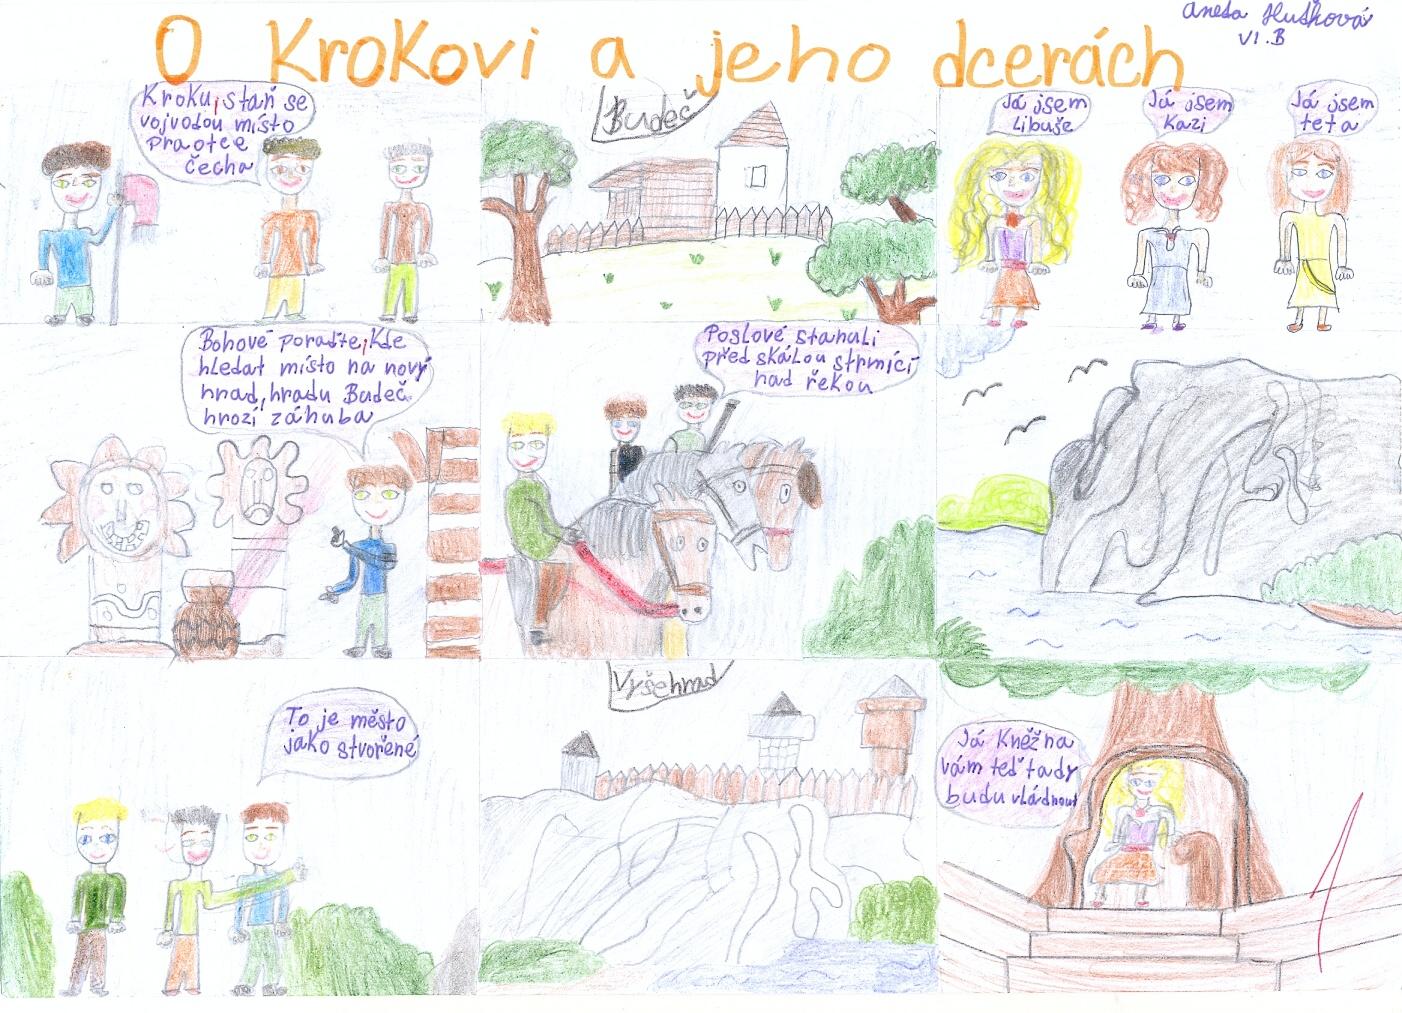 Aneta Hušková
VI.B
O Krokovi a jeho dcerách
Kroku, staň se
vojvodou místo
praotce
čecha
Budeč
Já jsem
Libuše
Já jsem
Kazi
Já jsem
teta
Bohové poraďte, kde
hledat místo na nový
hrad, hradu Budeč
hrozí záhuba
Poslové stanuli
před skálou strmící
nad řekou
To je město
jako stvořené
Vyšehrad
Já Kněžna
vám teď tady
budu vládnout
1